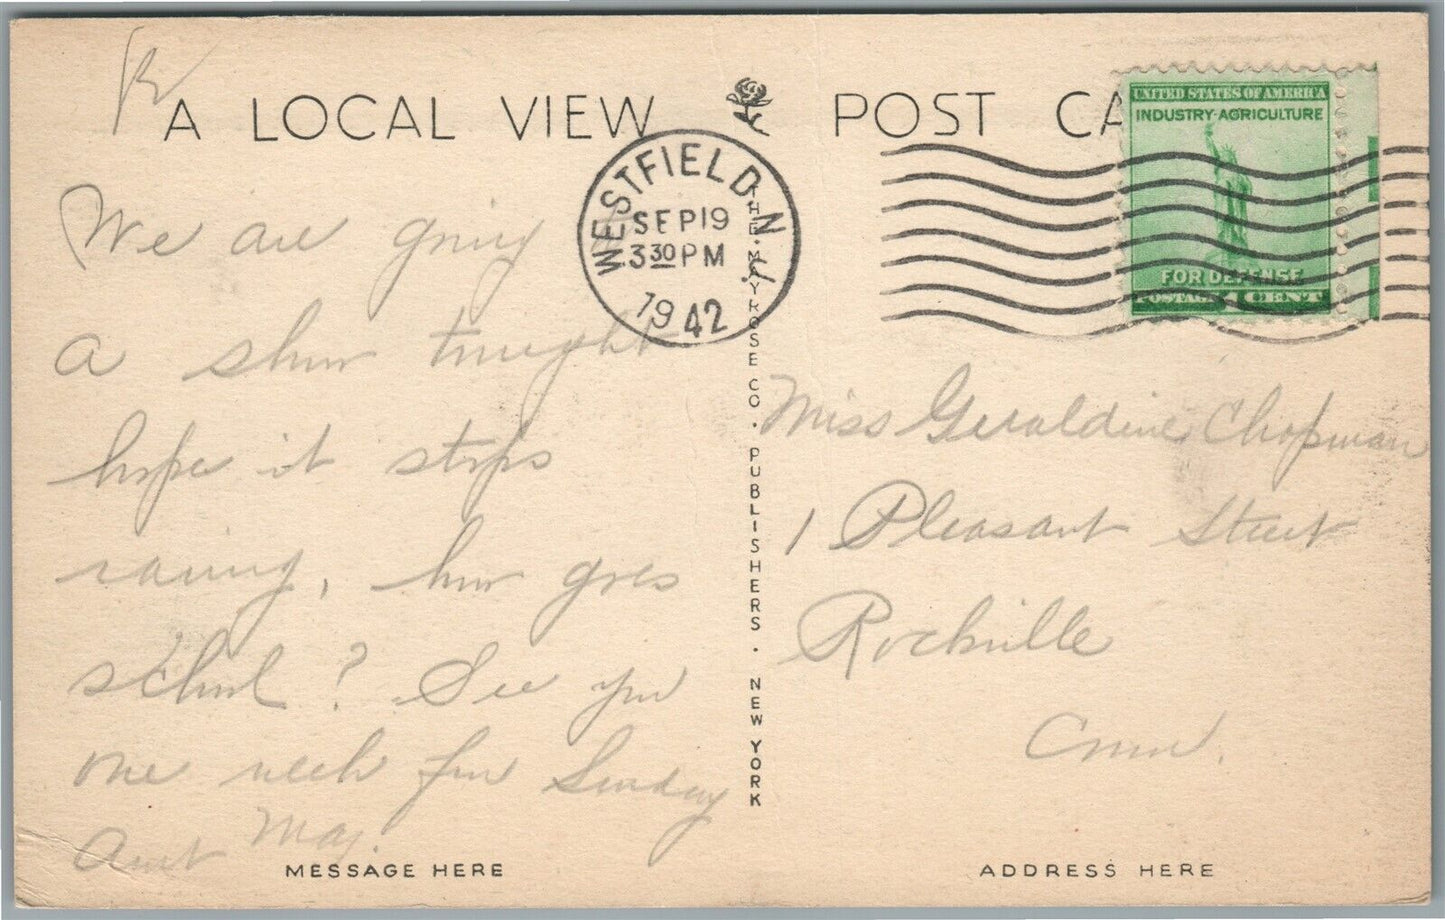 A LOCAL VIEW
POST CA
UNITED STATES OF AMERICA
INDUSTRY·AGRICULTURE
FOR DEFENSE
POSTAGE 1 CENT
WESTFIELD, N.Y.
SEP 19
3 30 PM
1942
We are going to
a show tonight
hope it stops
raining, how goes
school? See you
one week from Sunday
Aunt Maj.
THE MAYROSE CO. PUBLISHERS. NEW YORK
Miss Geraldine Chapman
1 Pleasant Street
Rockville
Conn.
MESSAGE HERE
ADDRESS HERE